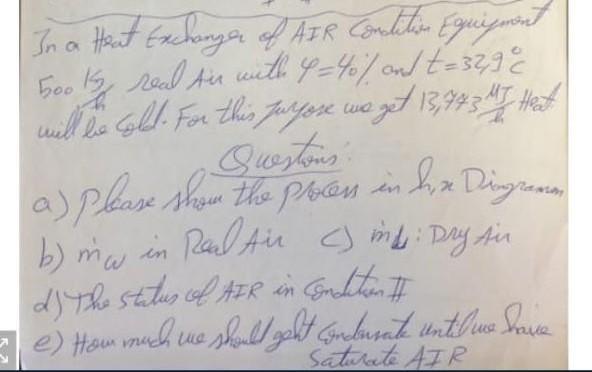 In a Heat Exchanger of AIR Condition Equipment
500 Kg/h real Air with φ=40% and t=32,9°C
will be Cold. For this purpose we get 13,743 MJ/h Heat
Questions:
a) Please show the Process in h,x Diagramm
b) ṁw in Real Air c) ṁL: Dry Air
d) The status of AIR in Condition II
e) How much we should get Condensate until we have
Saturate AIR